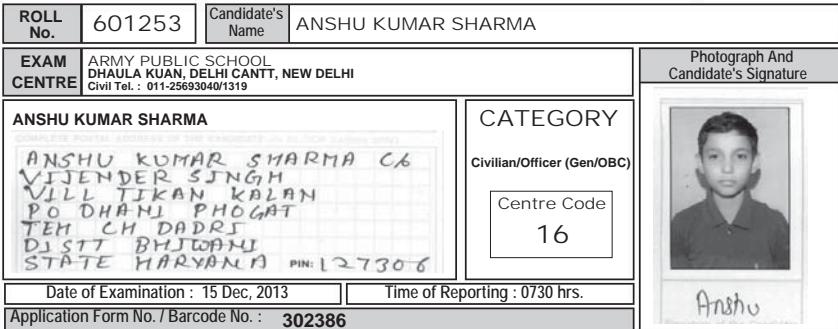 ROLL No. 601253 Candidate's Name ANSHU KUMAR SHARMA
EXAM CENTRE
ARMY PUBLIC SCHOOL
DHAULA KUAN, DELHI CANTT, NEW DELHI
Civil Tel. : 011-25693040/1319
Photograph And
Candidate's Signature
ANSHU KUMAR SHARMA
COMPLETE POSTAL ADDRESS OF THE CANDIDATE
ANSHU KUMAR SHARMA C/o
VIJENDER SINGH
VILL TIKAN KALAN
PO DHANI PHOGAT
TEH CH DADRI
DISTT BHIWANI
STATE HARYANA PIN: 127306
CATEGORY
Civilian/Officer (Gen/OBC)
Centre Code
16
Anshu
Date of Examination : 15 Dec, 2013 Time of Reporting : 0730 hrs.
Application Form No. / Barcode No. : 302386